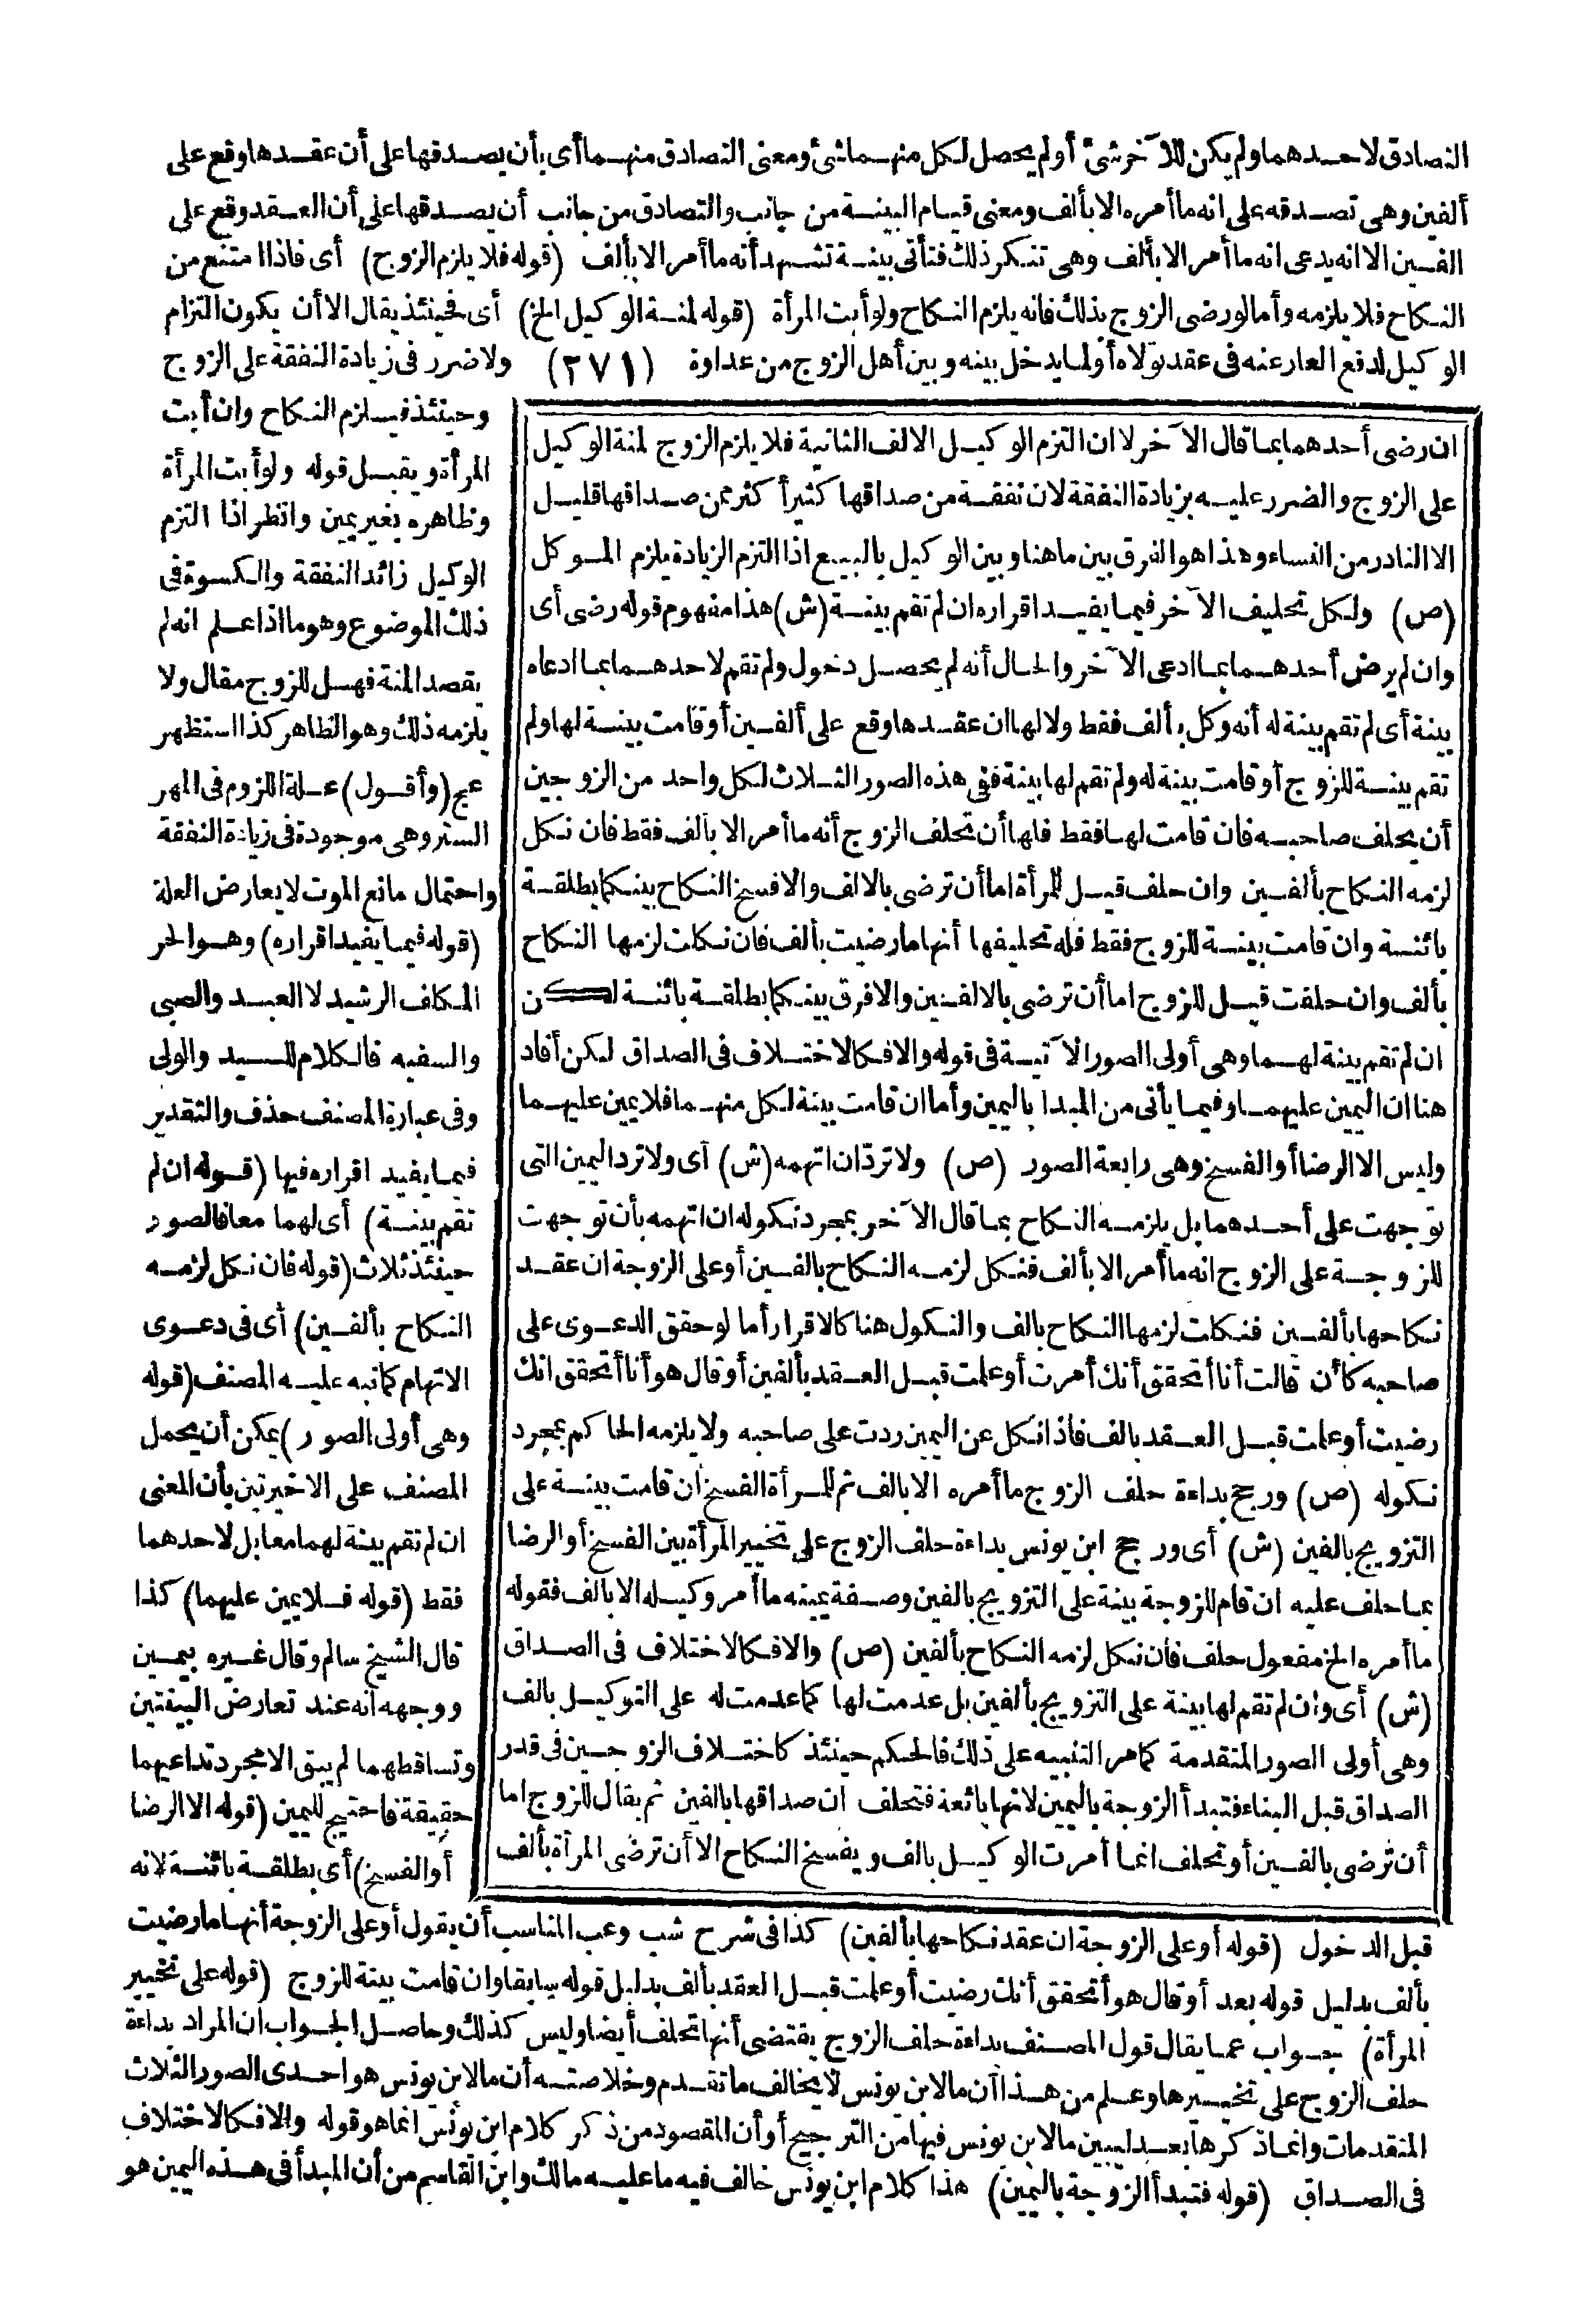 التصادق لاحدهما ولم يكن للآخر شئ أو لم يحصل لكل منهما شئ ومعنى التصادق منهما أى بأن يصدقها على أن عقدها وقع على
ألفين وهى تصدقه على انه ما أمره الا بألف ومعنى قيام البينة من جانب والتصادق من جانب أن يصدقها على أن العقد وقع على
الفين الا انه يدعى انه ما أمر الا بألف وهى تنكر ذلك فتأتى بينة تشهد أنه ما أمر الا بألف (قوله فلا يلزم الزوج) أى فاذا امتنع من
النكاح فلا يلزمه وأما لو رضى الزوج بذلك فانه يلزم النكاح ولو أبت المرأة (قوله لمنة الوكيل الخ) أى فحينئذ يقال الا أن يكون التزام
الوكيل لدفع العار عنه فى عقد تولاه أو لما يدخل بينه وبين أهل الزوج من عداوة (٢٧١) ولا ضرر فى زيادة النفقة على الزوج
ان رضى أحدهما بما قال الآخر لا ان التزم الوكيل الالف الثانية فلا يلزم الزوج لمنة الوكيل
على الزوج والضرر عليه بزيادة النفقة لان نفقة من صداقها كثير أكثر ممن صداقها قليل
الا النادر من النساء وهذا هو الفرق بين ما هنا وبين الوكيل بالبيع اذا التزم الزيادة يلزم الموكل
(ص) ولكل تحليف الآخر فيما يفيد اقراره ان لم تقم بينة (ش) هذا مفهوم قوله رضى أى
وان لم يرض أحدهما بما ادعى الآخر والحال أنه لم يحصل دخول ولم تقم لاحدهما بما ادعاه
بينة أى لم تقم بينة له أنه وكل بألف فقط ولا لها ان عقدها وقع على ألفين أو قامت بينة لها ولم
تقم بينة للزوج أو قامت بينة له ولم تقم لها بينة ففى هذه الصور الثلاث لكل واحد من الزوجين
أن يحلف صاحبه فان قامت لها فقط فلها أن تحلف الزوج أنه ما أمر الا بألف فقط فان نكل
لزمه النكاح بألفين وان حلف قيل للمرأة اما أن ترضى بالالف والا فسخ النكاح بينكما بطلقة
بائنة وان قامت بينة للزوج فقط فله تحليفها أنها ما رضيت بألف فان نكلت لزمها النكاح
بألف وان حلفت قيل للزوج اما أن ترضى بالالفين والا فرق بينكما بطلقة بائنة لكن
ان لم تقم بينة لهما وهى أولى الصور الآتية فى قوله والا فكالاختلاف فى الصداق لكن أفاد
هنا ان اليمين عليهما وفيما يأتى من المبدا باليمين وأما ان قامت بينة لكل منهما فلا يمين عليهما
وليس الا الرضا أو الفسخ وهى رابعة الصور (ص) ولا تردّ ان اتهمه (ش) أى ولا ترد اليمين التى
توجهت على أحدهما بل يلزمه النكاح بما قال الآخر بمجرد نكوله ان اتهمه بأن توجهت
للزوجة على الزوج انه ما أمر الا بألف فنكل لزمه النكاح بالفين أو على الزوجة ان عقد
نكاحها بألفين فنكلت لزمها النكاح بالف والنكول هنا كالاقرار أما لو حقق الدعوى على
صاحبه كأن قالت أنا أتحقق أنك أمرت أو علمت قبل العقد بألفين أو قال هو أنا أتحقق انك
رضيت أو علمت قبل العقد بالف فاذا نكل عن اليمين ردت على صاحبه ولا يلزمه الحاكم بمجرد
نكوله (ص) ورجح بداءة حلف الزوج ما أمره الا بالف ثم للمرأة الفسخ ان قامت بينة على
التزويج بالفين (ش) أى ورجح ابن يونس بداءة حلف الزوج على تخيير المرأة بين الفسخ أو الرضا
بما حلف عليه ان قام للزوجة بينة على التزويج بالفين وصفة يمينه ما أمر وكيله الا بالف فقوله
ما أمره الخ مفعول حلف فان نكل لزمه النكاح بألفين (ص) والا فكالاختلاف فى الصداق
(ش) أى وان لم تقم لها بينة على التزويج بألفين بل عدمت لها كما عدمت له على التوكيل بالف
وهى أولى الصور المتقدمة كما مر التنبيه على ذلك فالحكم حينئذ كاختلاف الزوجين فى قدر
الصداق قبل البناء فتبدأ الزوجة باليمين لانها بائعة فتحلف ان صداقها بالفين ثم يقال للزوج اما
أن ترضى بالفين أو تحلف انما أمرت الوكيل بالف ويفسخ النكاح الا أن ترضى المرأة بألف
وحينئذ فيلزم النكاح وان أبت
المرأة ويقبل قوله ولو أبت المرأة
وظاهره بغير يمين وانظر اذا التزم
الوكيل زائد النفقة والكسوة فى
ذلك الموضوع وهو ما اذا علم انه لم
يقصد المنة فهل للزوج مقال ولا
يلزمه ذلك وهو الظاهر كذا استظهر
عج (وأقول) علة اللزوم فى المهر
الستر وهى موجودة فى زيادة النفقة
واحتمال مانع الموت لا يعارض العلة
(قوله فيما يفيد اقراره) وهو الحر
المكلف الرشيد لا العبد والصبى
والسفيه فالكلام للسيد والولى
وفى عبارة المصنف حذف والتقدير
فيما يفيد اقراره فيها (قوله ان لم
تقم بينة) أى لهما معا فالصور
حينئذ ثلاث (قوله فان نكل لزمه
النكاح بألفين) أى فى دعوى
الاتهام كما نبه عليه المصنف (قوله
وهى أولى الصور) يمكن أن يحمل
المصنف على الاخيرتين بأن المعنى
ان لم تقم بينة لهما معا بل لاحدهما
فقط (قوله فلا يمين عليهما) كذا
قال الشيخ سالم وقال غيره بيمين
ووجهه أنه عند تعارض البينتين
وتساقطهما لم يبق الا مجرد تداعيهما
حقيقة فاحتيج لليمين (قوله الا الرضا
أو الفسخ) أى بطلقة بائنة لانه
قبل الدخول (قوله أو على الزوجة ان عقد نكاحها بألفين) كذا فى شرح شب وعب المناسب أن يقول أو على الزوجة أنها ما رضيت
بألف بدليل قوله بعد أو قال هو أتحقق أنك رضيت أو علمت قبل العقد بألف بدليل قوله سابقا وان قامت بينة للزوج (قوله على تخيير
المرأة) جواب عما يقال قول المصنف بداءة حلف الزوج يقتضى أنها تحلف أيضا وليس كذلك وحاصل الجواب ان المراد بداءة
حلف الزوج على تخييرها وعلم من هذا أن ما لابن يونس لا يخالف ما تقدم وخلاصته أن ما لابن يونس هو احدى الصور الثلاث
المتقدمات وانما ذكرها بعد ليبين ما لابن يونس فيها من الترجيح أو أن المقصود من ذكر كلام ابن يونس انما هو قوله والا فكالاختلاف
فى الصداق (قوله فتبدأ الزوجة باليمين) هذا كلام ابن يونس خالف فيه ما عليه مالك وابن القاسم من أن المبدأ فى هذه اليمين هو